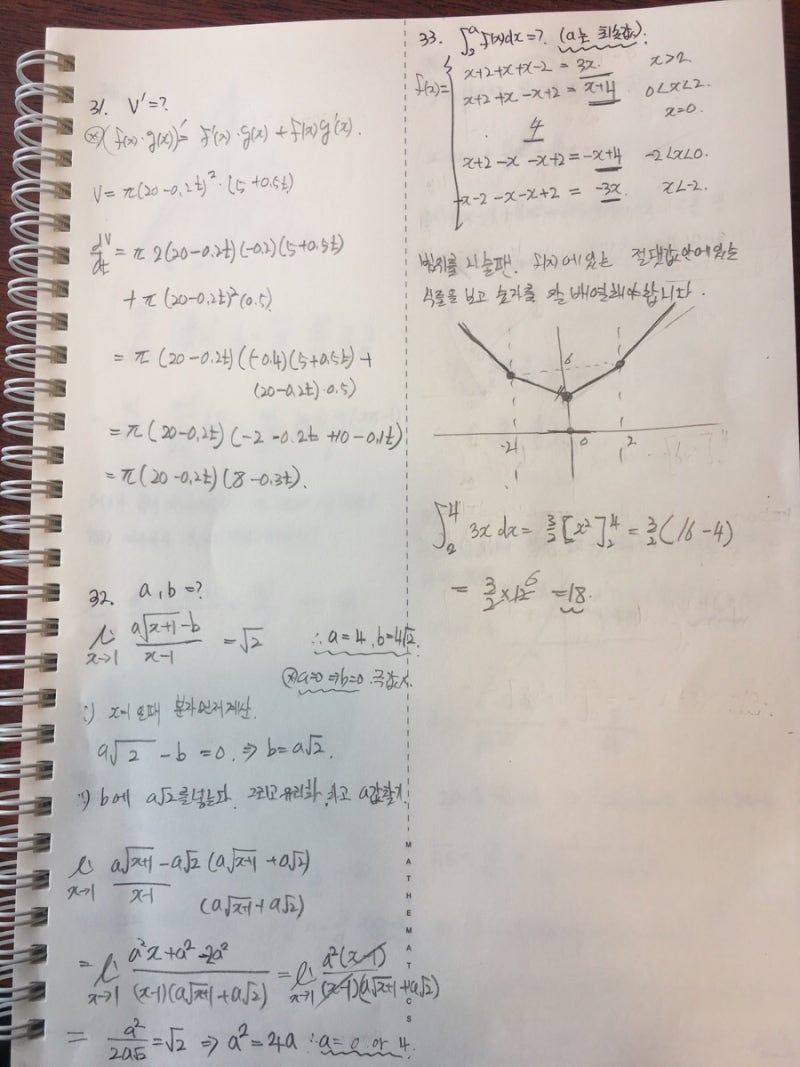 31. V'=?
(※)(f(x)·g(x))'= f'(x)·g(x) + f(x)g'(x).
V= π(20-0.2t)²·(5+0.5t)
dV/dt = π 2(20-0.2t)(-0.2)(5+0.5t)
+ π(20-0.2t)²(0.5)
= π (20-0.2t)((-0.4)(5+0.5t)+
(20-0.2t)·0.5)
= π(20-0.2t)(-2-0.2t+10-0.1t)
= π(20-0.2t)(8-0.3t).
32. a,b=?
li x→1 (a√(x+1)-b)/(x-1) = √2 ∴ a=4, b=4√2.
(※)a=0⇒b=0
i) 분자먼저계산.
a√2 - b = 0. ⇒ b=a√2.
ii) b에 a√2를 넣는다. 그리고 유리화 하고 a값찾기.
li x→1 a√(x+1)-a√2 (a√(x+1)+a√2)/(x-1) (a√(x+1)+a√2)
= li x→1 (a²x+a²-2a²)/((x-1)(a√(x+1)+a√2)) = li x→1 a²(x-1)/((x-1)(a√(x+1)+a√2))
= a²/(2a√2) = √2 ⇒ a²=4a ∴ a=0 or 4.
MATHEMATICS
33. ∫₂ᵃ f(x)dx=?. (a는 최솟값).
f(x)= { x+2+x+x-2 = 3x. x>2.
x+2+x-x+2 = x+4 0<x<2.
4 x=0.
x+2-x-x+2 = -x+4 -2<x<0.
-x-2-x-x+2 = -3x. x<-2.
범위를 나눌땐. 있는 절댓값안에있는
식들을 보고 숫자를 잘 배열해야합니다.
6
4
-2 0 2
∫₂⁴ 3x dx = 3/2[x²]₂⁴ = 3/2(16-4)
= 3/2 × 12 6 = 18.